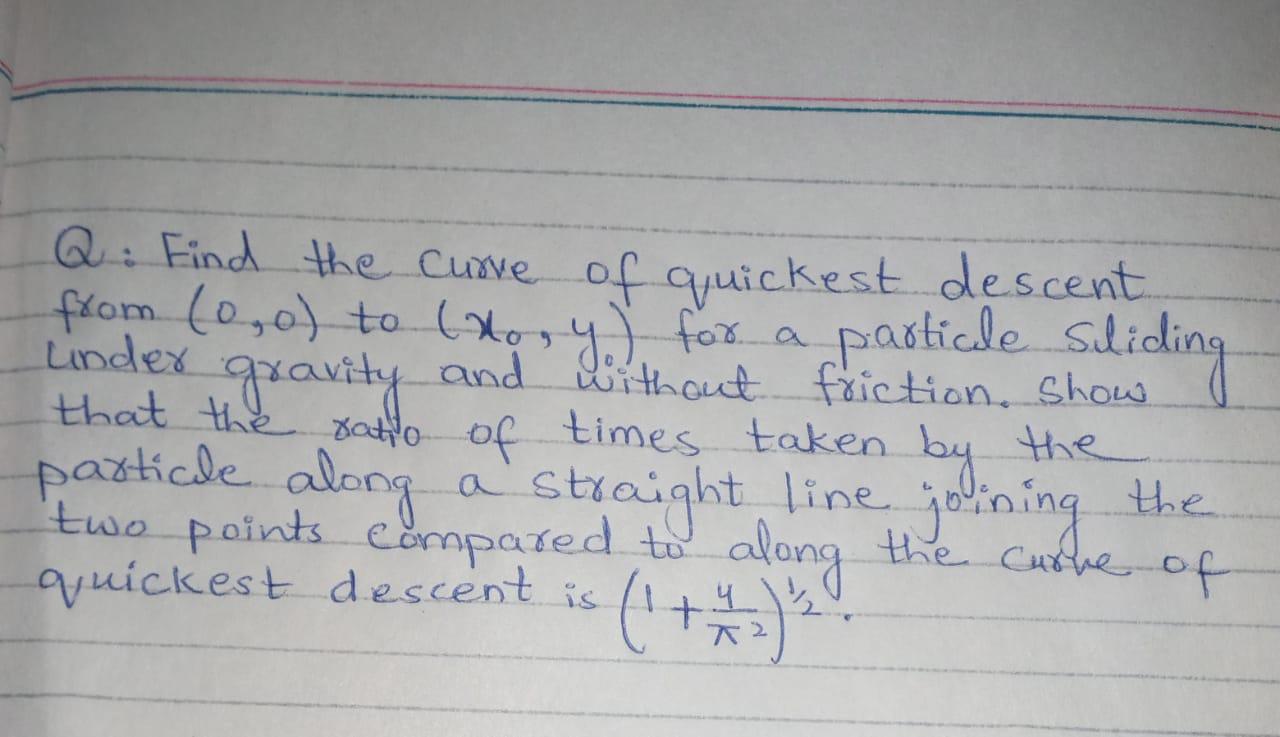 Q: Find the curve of quickest descent
from (0,0) to (x₀, y₀) for a particle sliding
under gravity and without friction. Show
that the ratio of times taken by the
particle along a straight line joining the
two points compared to along the curve of
quickest descent is (1 + 4/π²)^½.